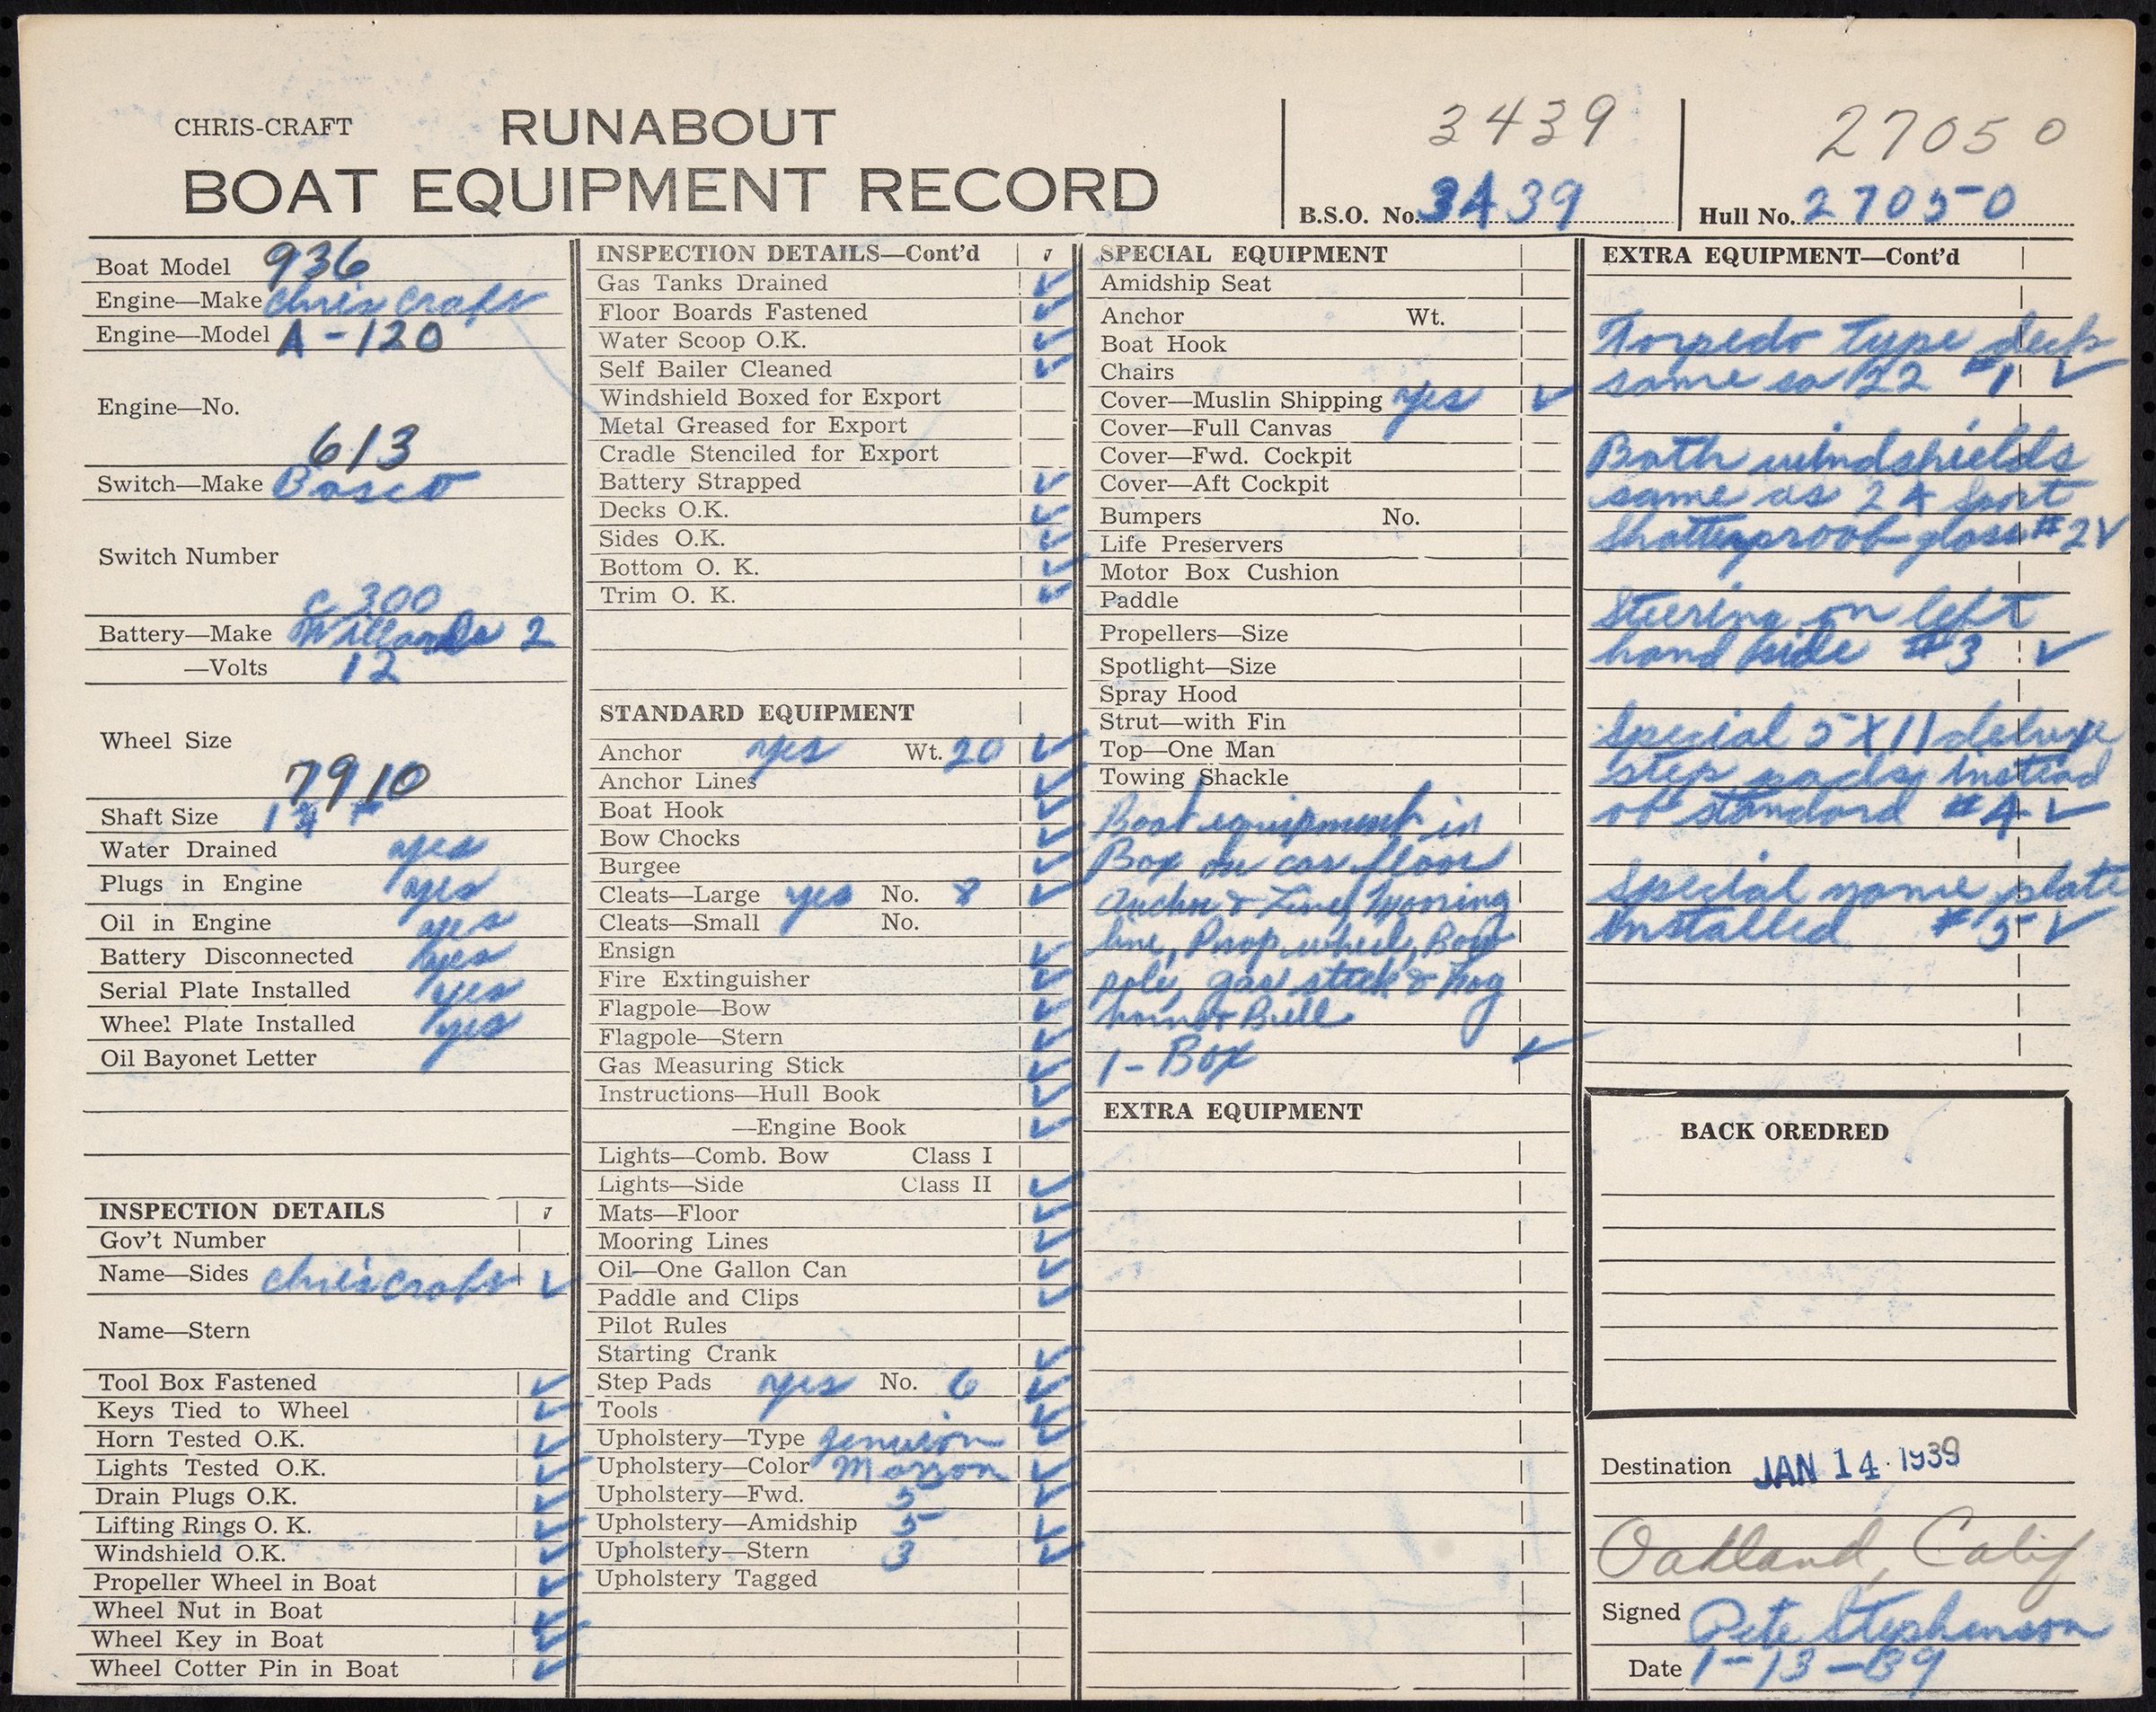 CHRIS-CRAFT
RUNABOUT
BOAT EQUIPMENT RECORD
3439
B.S.O. No. 3439
27050
Hull No. 27050
Boat Model 936
Engine—Make Chris Craft
Engine—Model A-120
Engine—No.
613
Switch—Make Bosco
Switch Number
C 300
Battery—Make Willards 2
—Volts 12
Wheel Size
7910
Shaft Size 1
Water Drained yes
Plugs in Engine yes
Oil in Engine yes
Battery Disconnected yes
Serial Plate Installed yes
Wheel Plate Installed yes
Oil Bayonet Letter
INSPECTION DETAILS √
Gov't Number
Name—Sides Chris Craft ✓
Name—Stern
Tool Box Fastened ✓
Keys Tied to Wheel ✓
Horn Tested O.K. ✓
Lights Tested O.K. ✓
Drain Plugs O.K. ✓
Lifting Rings O. K. ✓
Windshield O.K. ✓
Propeller Wheel in Boat ✓
Wheel Nut in Boat ✓
Wheel Key in Boat ✓
Wheel Cotter Pin in Boat ✓
INSPECTION DETAILS—Cont'd √
Gas Tanks Drained ✓
Floor Boards Fastened ✓
Water Scoop O.K. ✓
Self Bailer Cleaned ✓
Windshield Boxed for Export
Metal Greased for Export
Cradle Stenciled for Export
Battery Strapped ✓
Decks O.K. ✓
Sides O.K. ✓
Bottom O. K. ✓
Trim O. K. ✓
STANDARD EQUIPMENT
Anchor yes Wt. 20 ✓
Anchor Lines ✓
Boat Hook ✓
Bow Chocks ✓
Burgee ✓
Cleats—Large yes No. 8 ✓
Cleats—Small No.
Ensign ✓
Fire Extinguisher ✓
Flagpole—Bow ✓
Flagpole—Stern ✓
Gas Measuring Stick ✓
Instructions—Hull Book ✓
—Engine Book ✓
Lights—Comb. Bow Class I
Lights—Side Class II ✓
Mats—Floor ✓
Mooring Lines ✓
Oil—One Gallon Can ✓
Paddle and Clips ✓
Pilot Rules
Starting Crank ✓
Step Pads yes No. 6 ✓
Tools ✓
Upholstery—Type ✓
Upholstery—Color Maroon ✓
Upholstery—Fwd. ✓
Upholstery—Amidship 5 ✓
Upholstery—Stern 3 ✓
Upholstery Tagged
SPECIAL EQUIPMENT
Amidship Seat
Anchor Wt.
Boat Hook
Chairs
Cover—Muslin Shipping yes ✓
Cover—Full Canvas
Cover—Fwd. Cockpit
Cover—Aft Cockpit
Bumpers No.
Life Preservers
Motor Box Cushion
Paddle
Propellers—Size
Spotlight—Size
Spray Hood
Strut—with Fin
Top—One Man
Towing Shackle
Boat equipment in
Box on car floor
Anchor & Line, Mooring
line, Prop wheel, Bow
pole, gas stick & Fog
horn & Bell
1 - Box ✓
EXTRA EQUIPMENT
EXTRA EQUIPMENT—Cont'd
Torpedo type deck
same as 22 #1 ✓
Both windshields
same as 24 Sport
Shatterproof glass #2 ✓
Steering on left
hand side #3 ✓
Special 5 X 11 deluxe
step pads instead
of standard #4 ✓
Special name plate
installed #5 ✓
BACK OREDRED
Destination JAN 14 1939
Oakland, Calif
Signed Pete Stephenson
Date 1-13-39